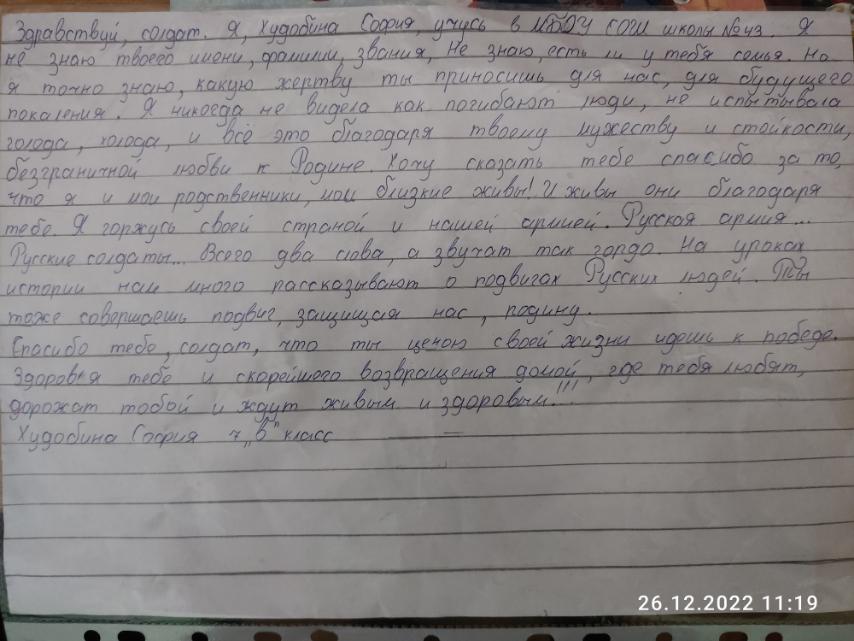 Здравствуй, солдат. Я, Худобина София, учусь в МБОУ СОШ школы №43. Я
не знаю твоего имени, фамилии, звания, Не знаю, есть ли у тебя семья. Но
я точно знаю, какую жертву ты приносишь для нас, для будущего
поколения. Я никогда не видела как погибают люди, не испытывала
голода, холода, и всё это благодаря твоему мужеству и стойкости,
безграничной любви к Родине. Хочу сказать тебе спасибо за то,
что я и мои родственники, мои близкие живы! И живы они благодаря
тебе. Я горжусь своей страной и нашей армией. Русская армия...
Русские солдаты... Всего два слова, а звучат так гордо. На уроках
истории нам много рассказывают о подвигах Русских людей. Ты
тоже совершаешь подвиг, защищая нас, родину.
Спасибо тебе, солдат, что ты ценою своей жизни идешь к победе.
Здоровья тебе и скорейшего возвращения домой, где тебя любят,
дорожат тобой и ждут живым и здоровым!!!
Худобина София 7 „в" класс
26.12.2022 11:19